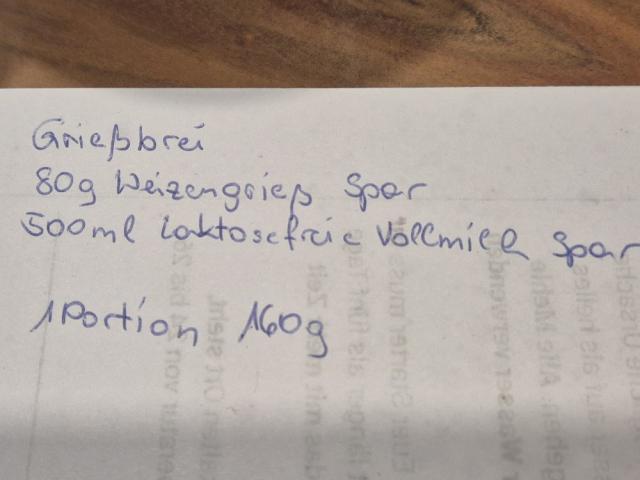 Grießbrei
80g Weizengrieß Spar
500ml laktosefreie Vollmilch Spar
1 Portion 160g